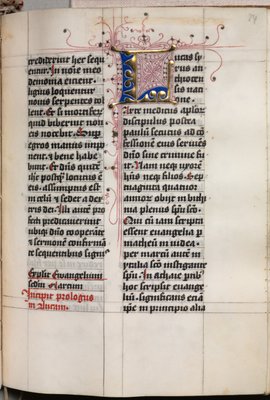 crediderint hec sequ
entur. In noie meo
demonia eicient.
liguis loquentur
nouis serpentes tol
lent. Et si mortiferu
quid biberint non
eis nocebit. Sup
egros manus impo
nent: et bene habe
bunt. Et dns quide
ihc postqz locutus est
eis: assumptus est
in celu: et sedet a dex
tris dei. Illi aute pro
fecti predicauerunt
ubiqz dno cooperate
et sermone confirma
te sequentibus signis
Explicit Ewangelium
scdm Marcum
Incipit prologus
in Lucam.
Lucas sy
rus an
thiocen
sis nati
one.
Arte medicus aplor
discipulus: postea
paulu secutus ad co
fessione eius seruies
dno sine crimine fu
it. Nam neqz uxore
hns neqz filios: sep
tuaginta quatuor
annor obijt in bithi
nia plenus spu sco.
Qui cu iam scripta
essent euangelia p
matheu in iudea:
per marcu aute in
ytalia: sco instigante
spu: in achaie ptibz
hoc scripsit euange
liu: significans etia
ipe in principio alia